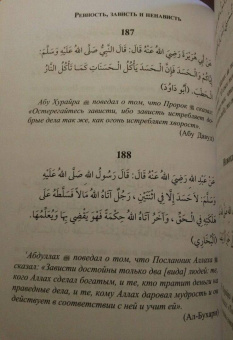 Ревность, зависть и ненависть
187
عَنْ أَبِي هُرَيْرَةَ رَضِيَ اللهُ عَنْهُ قَالَ: قَالَ النَّبِيُّ صَلَّى اللهُ عَلَيْهِ وَسَلَّمَ:
وَالْحَسَدَ فَإِنَّ الْحَسَدَ يَأْكُلُ الْحَسَنَاتِ كَمَا تَأْكُلُ النَّارُ
الْحَطَبَ. (أَبُو دَاوُدَ)
Абу Хурайра ﷺ поведал о том, что Пророк ﷺ сказал:
«Остерегайтесь зависти, ибо зависть истребляет
брые дела так же, как огонь истребляет хворост».
(Абу Давуд)
188
عَنْ عَبْدِ اللهِ رَضِيَ اللهُ عَنْهُ قَالَ: قَالَ رَسُولُ اللهِ صَلَّى اللهُ عَلَيْهِ
وَسَلَّمَ: لَا حَسَدَ إِلَّا فِي اثْنَتَيْنِ، رَجُلٌ آتَاهُ اللهُ مَالًا فَسَلَّطَهُ عَلَى
هَلَكَتِهِ فِي الْحَقِّ، وَآخَرُ آتَاهُ اللهُ حِكْمَةً فَهُوَ يَقْضِي بِهَا وَيُعَلِّمُهَا.
(الْبُخَارِيُّ)
'Абдуллах поведал о том, что Посланник Аллаха ﷺ
сказал: «Зависти достойны только два [вида] людей: те,
кого Аллах сделал богатыми, и те, кто тратит деньги на
праведные дела, и те, кому Аллах даровал мудрость и он
действует в соответствии с ней и учит ей».
(Ал-Бухари)